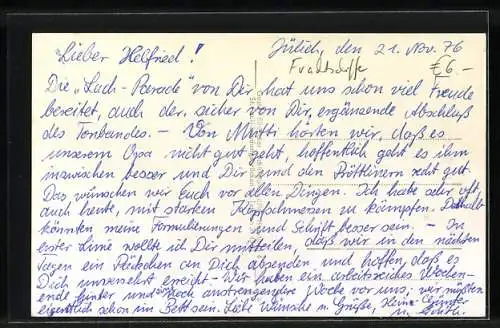 Lieber Helfried!
Jülich, den 21. Nov. 76
Frachtschiffe
€ 6.-
Die „Lach-Parade" von Dir hat uns schon viel Freude
bereitet, auch der, sicher von Dir, ergänzende Abschluß
des Tonbandes. – Von Mutti hörten wir, daß es
unserem Opa nicht gut geht, hoffentlich geht es ihm
inzwischen besser und Dir und den
recht gut.
Das wünschen wir Euch vor allen Dingen. Ich habe sehr oft,
auch heute, mit starken Kopfschmerzen zu kämpfen. Deshalb
könnten meine Formulierungen und Schrift besser sein. – In
erster Linie wollte ich Dir mitteilen, daß wir in den nächsten
Tagen ein Päckchen an Dich absenden und hoffen, daß es
Dich unversehrt erreicht. – Wir haben ein arbeitsreiches Wochen-
ende hinter und anstrengendere Woche vor uns; wir müßten
eigentlich schon im Bett sein. Liebe Wünsche u. Grüße, Heinz Günter
u.